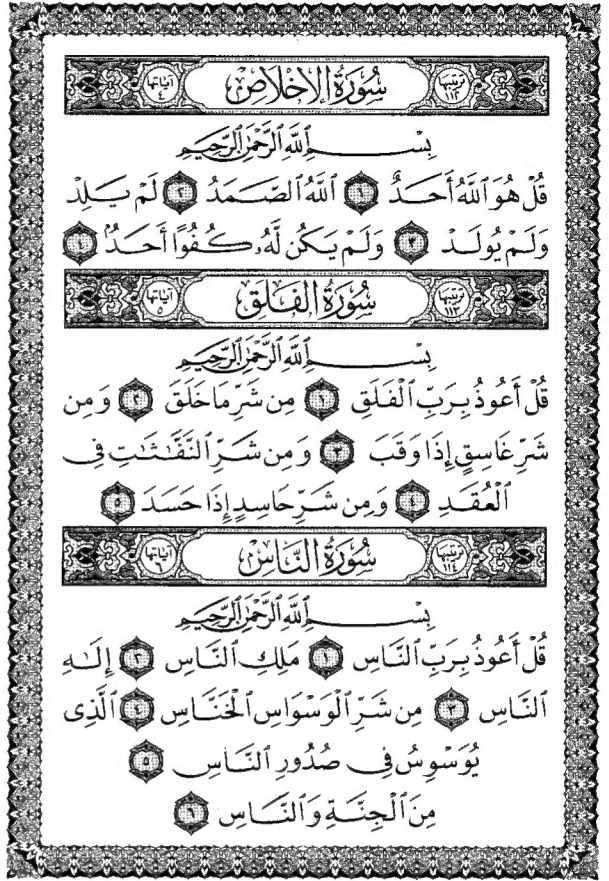 ترتيبها ١١٢ سُورَةُ الإِخْلَاصِ آيَاتُهَا ٤
بِسْمِ ٱللَّهِ ٱلرَّحْمَٰنِ ٱلرَّحِيمِ
قُلْ هُوَ ٱللَّهُ أَحَدٌ ١ ٱللَّهُ ٱلصَّمَدُ ٢ لَمْ يَلِدْ
وَلَمْ يُولَدْ ٣ وَلَمْ يَكُن لَّهُۥ كُفُوًا أَحَدٌۢ ٤
ترتيبها ١١٣ سُورَةُ الفَلَقِ آيَاتُهَا ٥
بِسْمِ ٱللَّهِ ٱلرَّحْمَٰنِ ٱلرَّحِيمِ
قُلْ أَعُوذُ بِرَبِّ ٱلْفَلَقِ ١ مِن شَرِّ مَا خَلَقَ ٢ وَمِن
شَرِّ غَاسِقٍ إِذَا وَقَبَ ٣ وَمِن شَرِّ ٱلنَّفَّٰثَٰتِ فِى
ٱلْعُقَدِ ٤ وَمِن شَرِّ حَاسِدٍ إِذَا حَسَدَ ٥
ترتيبها ١١٤ سُورَةُ النَّاسِ آيَاتُهَا ٦
بِسْمِ ٱللَّهِ ٱلرَّحْمَٰنِ ٱلرَّحِيمِ
قُلْ أَعُوذُ بِرَبِّ ٱلنَّاسِ ١ مَلِكِ ٱلنَّاسِ ٢ إِلَٰهِ
ٱلنَّاسِ ٣ مِن شَرِّ ٱلْوَسْوَاسِ ٱلْخَنَّاسِ ٤ ٱلَّذِى
يُوَسْوِسُ فِى صُدُورِ ٱلنَّاسِ ٥
مِنَ ٱلْجِنَّةِ وَٱلنَّاسِ ٦